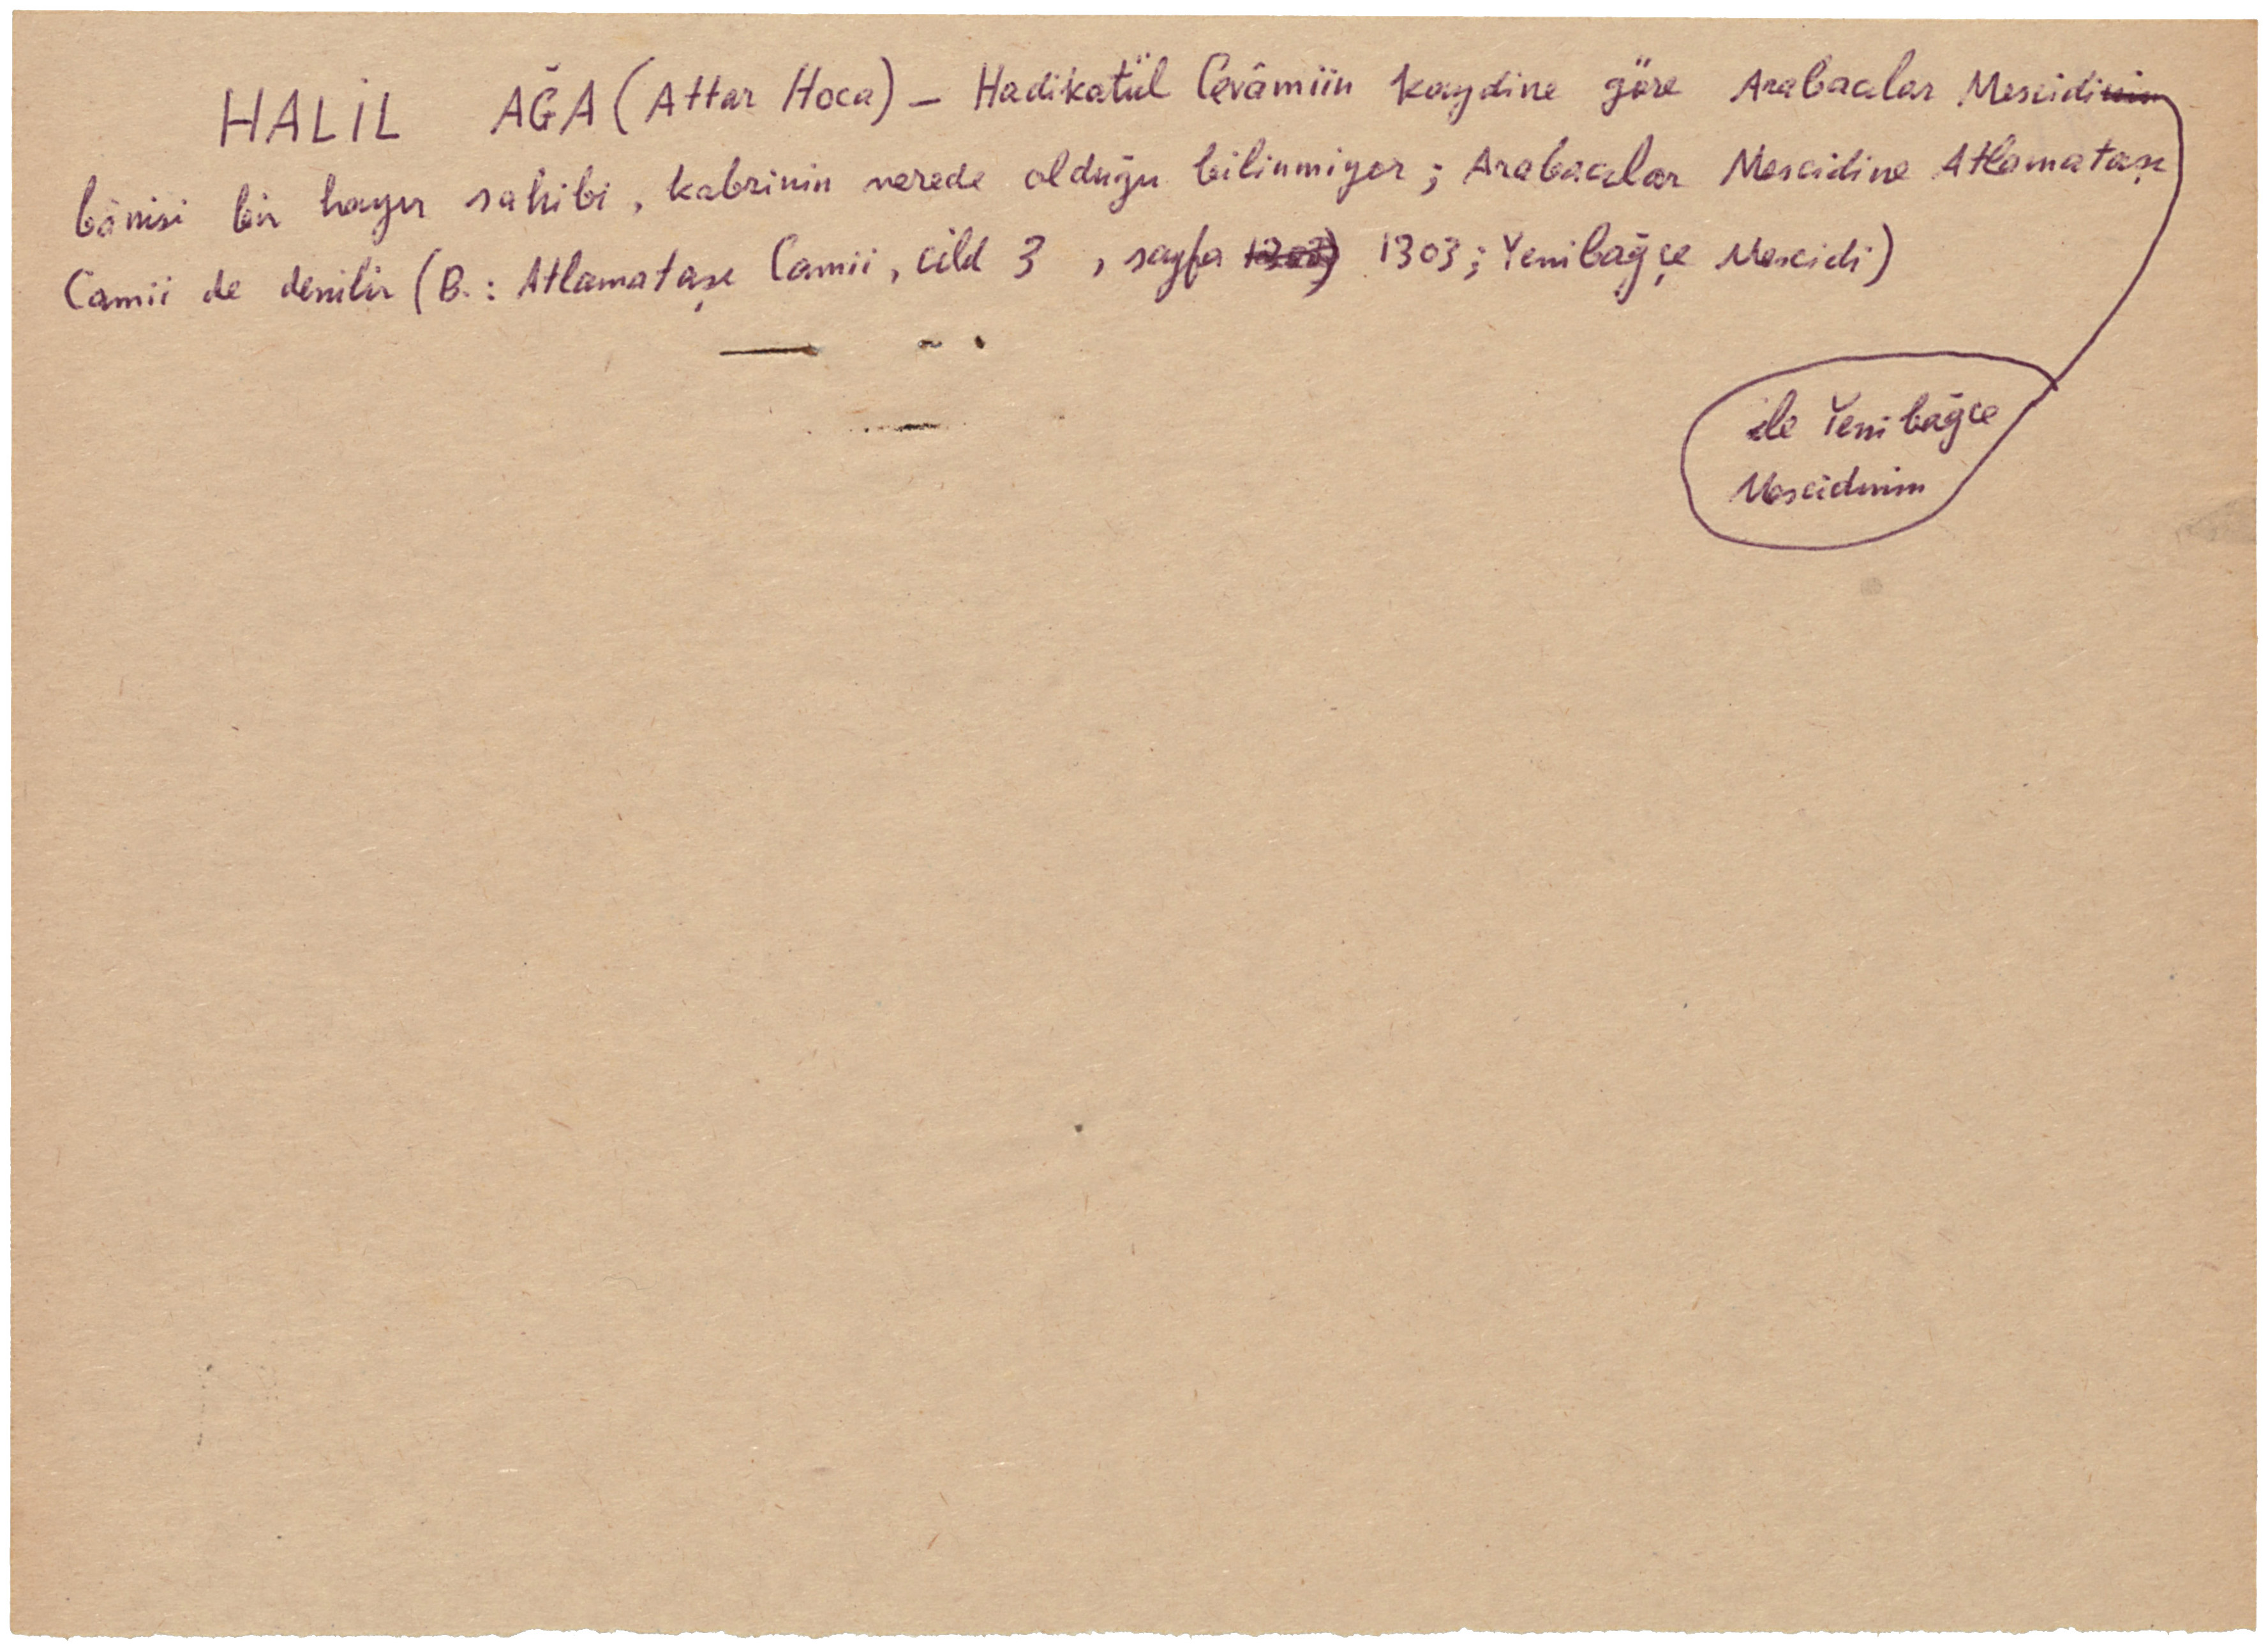 HALİL AĞA (Attar Hoca) — Hadikatül Cevâmiin kaydine göre Arabacılar Mescidinin
bânisi bir hayır sahibi, kabrinin nerede olduğu bilinmiyor; Arabacılar Mescidine Atlamataşı
Camii de denilir (B.: Atlamataşı Camii, cild 3 , sayfa 1303) 1303; Yenibağçe Mescidi)
ile Yenibağçe
Mescidinin